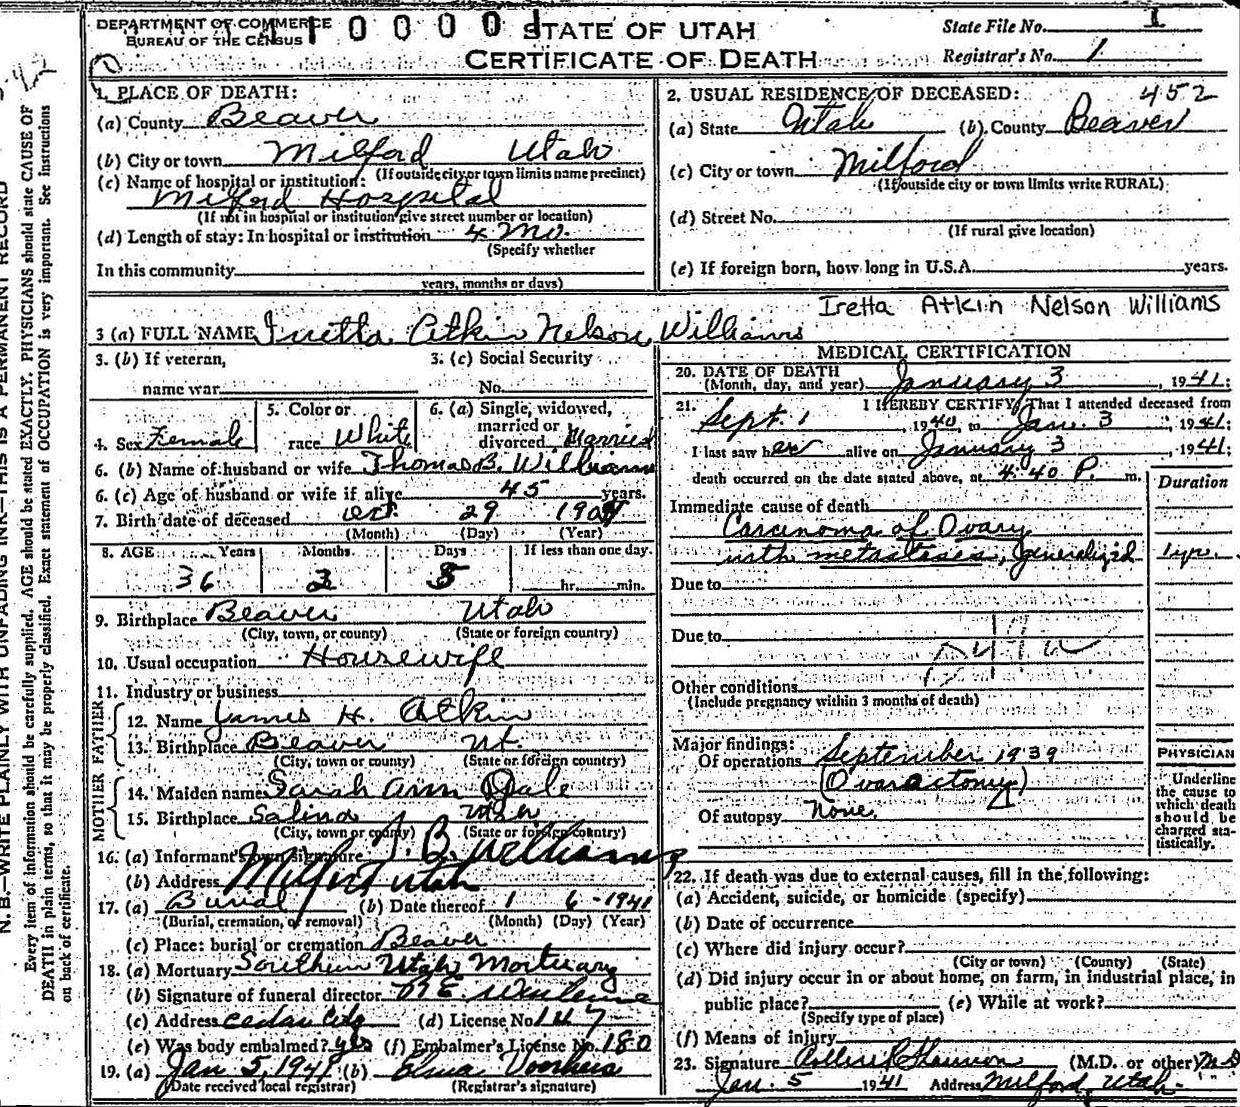 DEPARTMENT OF COMMERCE
BUREAU OF THE CENSUS
0 0 0 0 1
STATE OF UTAH
CERTIFICATE OF DEATH
State File No. 1
Registrar's No. 1
1. PLACE OF DEATH:
(a) County Beaver
(b) City or town Milford Utah
(If outside city or town limits name precinct)
(c) Name of hospital or institution:
Milford Hospital
(If not in hospital or institution give street number or location)
(d) Length of stay: In hospital or institution 4 mo.
(Specify whether
In this community
years, months or days)
2. USUAL RESIDENCE OF DECEASED: 452
(a) State Utah (b) County Beaver
(c) City or town Milford
(If outside city or town limits write RURAL)
(d) Street No.
(If rural give location)
(e) If foreign born, how long in U.S.A. years.
Iretta Atkin Nelson Williams
3 (a) FULL NAME Iretta Atkin Nelson Williams
3. (b) If veteran,
name war
3. (c) Social Security
No.
4. Sex Female
5. Color or
race White
6. (a) Single, widowed,
married or
divorced Married
6. (b) Name of husband or wife Thomas B. Williams
6. (c) Age of husband or wife if alive 45 years.
7. Birth date of deceased Oct. 29 1904
(Month) (Day) (Year)
8. AGE Years Months Days If less than one day
36 2 5 hr. min.
9. Birthplace Beaver Utah
(City, town, or county) (State or foreign country)
10. Usual occupation Housewife
11. Industry or business
FATHER
12. Name James H. Atkin
13. Birthplace Beaver Ut.
(City, town or county) (State or foreign country)
MOTHER
14. Maiden name Sarah Ann Dale
15. Birthplace Salina Utah
(City, town or county) (State or foreign country)
16. (a) Informant's own signature T. B. Williams
(b) Address Milford Utah
17. (a) Burial (b) Date thereof 1 6-1941
(Burial, cremation, or removal) (Month) (Day) (Year)
(c) Place: burial or cremation Beaver
18. (a) Mortuary Southern Utah Mortuary
(b) Signature of funeral director
(c) Address Cedar City (d) License No. 147
(e) Was body embalmed? yes (f) Embalmer's License No. 180
19. (a) Jan 5, 1941 (b) Elma Voorhees
(Date received local registrar) (Registrar's signature)
MEDICAL CERTIFICATION
20. DATE OF DEATH
(Month, day, and year) January 3, 1941;
21. I HEREBY CERTIFY, That I attended deceased from
Sept. 1, 1940, to Jan. 3, 1941;
I last saw her alive on January 3, 1941;
death occurred on the date stated above, at 4:40 P. m.
Duration
Immediate cause of death
Carcinoma of Ovary
with metastases, generalized 1 yr.
Due to
Due to
Other conditions
(Include pregnancy within 3 months of death)
Major findings:
Of operations September 1939
(Ovarectomy)
Of autopsy None.
PHYSICIAN
Underline
the cause to
which death
should be
charged sta-
tistically.
22. If death was due to external causes, fill in the following:
(a) Accident, suicide, or homicide (specify)
(b) Date of occurrence
(c) Where did injury occur?
(City or town) (County) (State)
(d) Did injury occur in or about home, on farm, in industrial place, in
public place? (e) While at work?
(Specify type of place)
(f) Means of injury
23. Signature (M.D. or other) M.D
Jan. 5 1941 Address Milford, Utah
N. B.—WRITE PLAINLY WITH UNFADING INK—THIS IS A PERMANENT RECORD
Every item of information should be carefully supplied. AGE should be stated EXACTLY. PHYSICIANS should state CAUSE OF
DEATH in plain terms, so that it may be properly classified. Exact statement of OCCUPATION is very important. See instructions
on back of certificate.